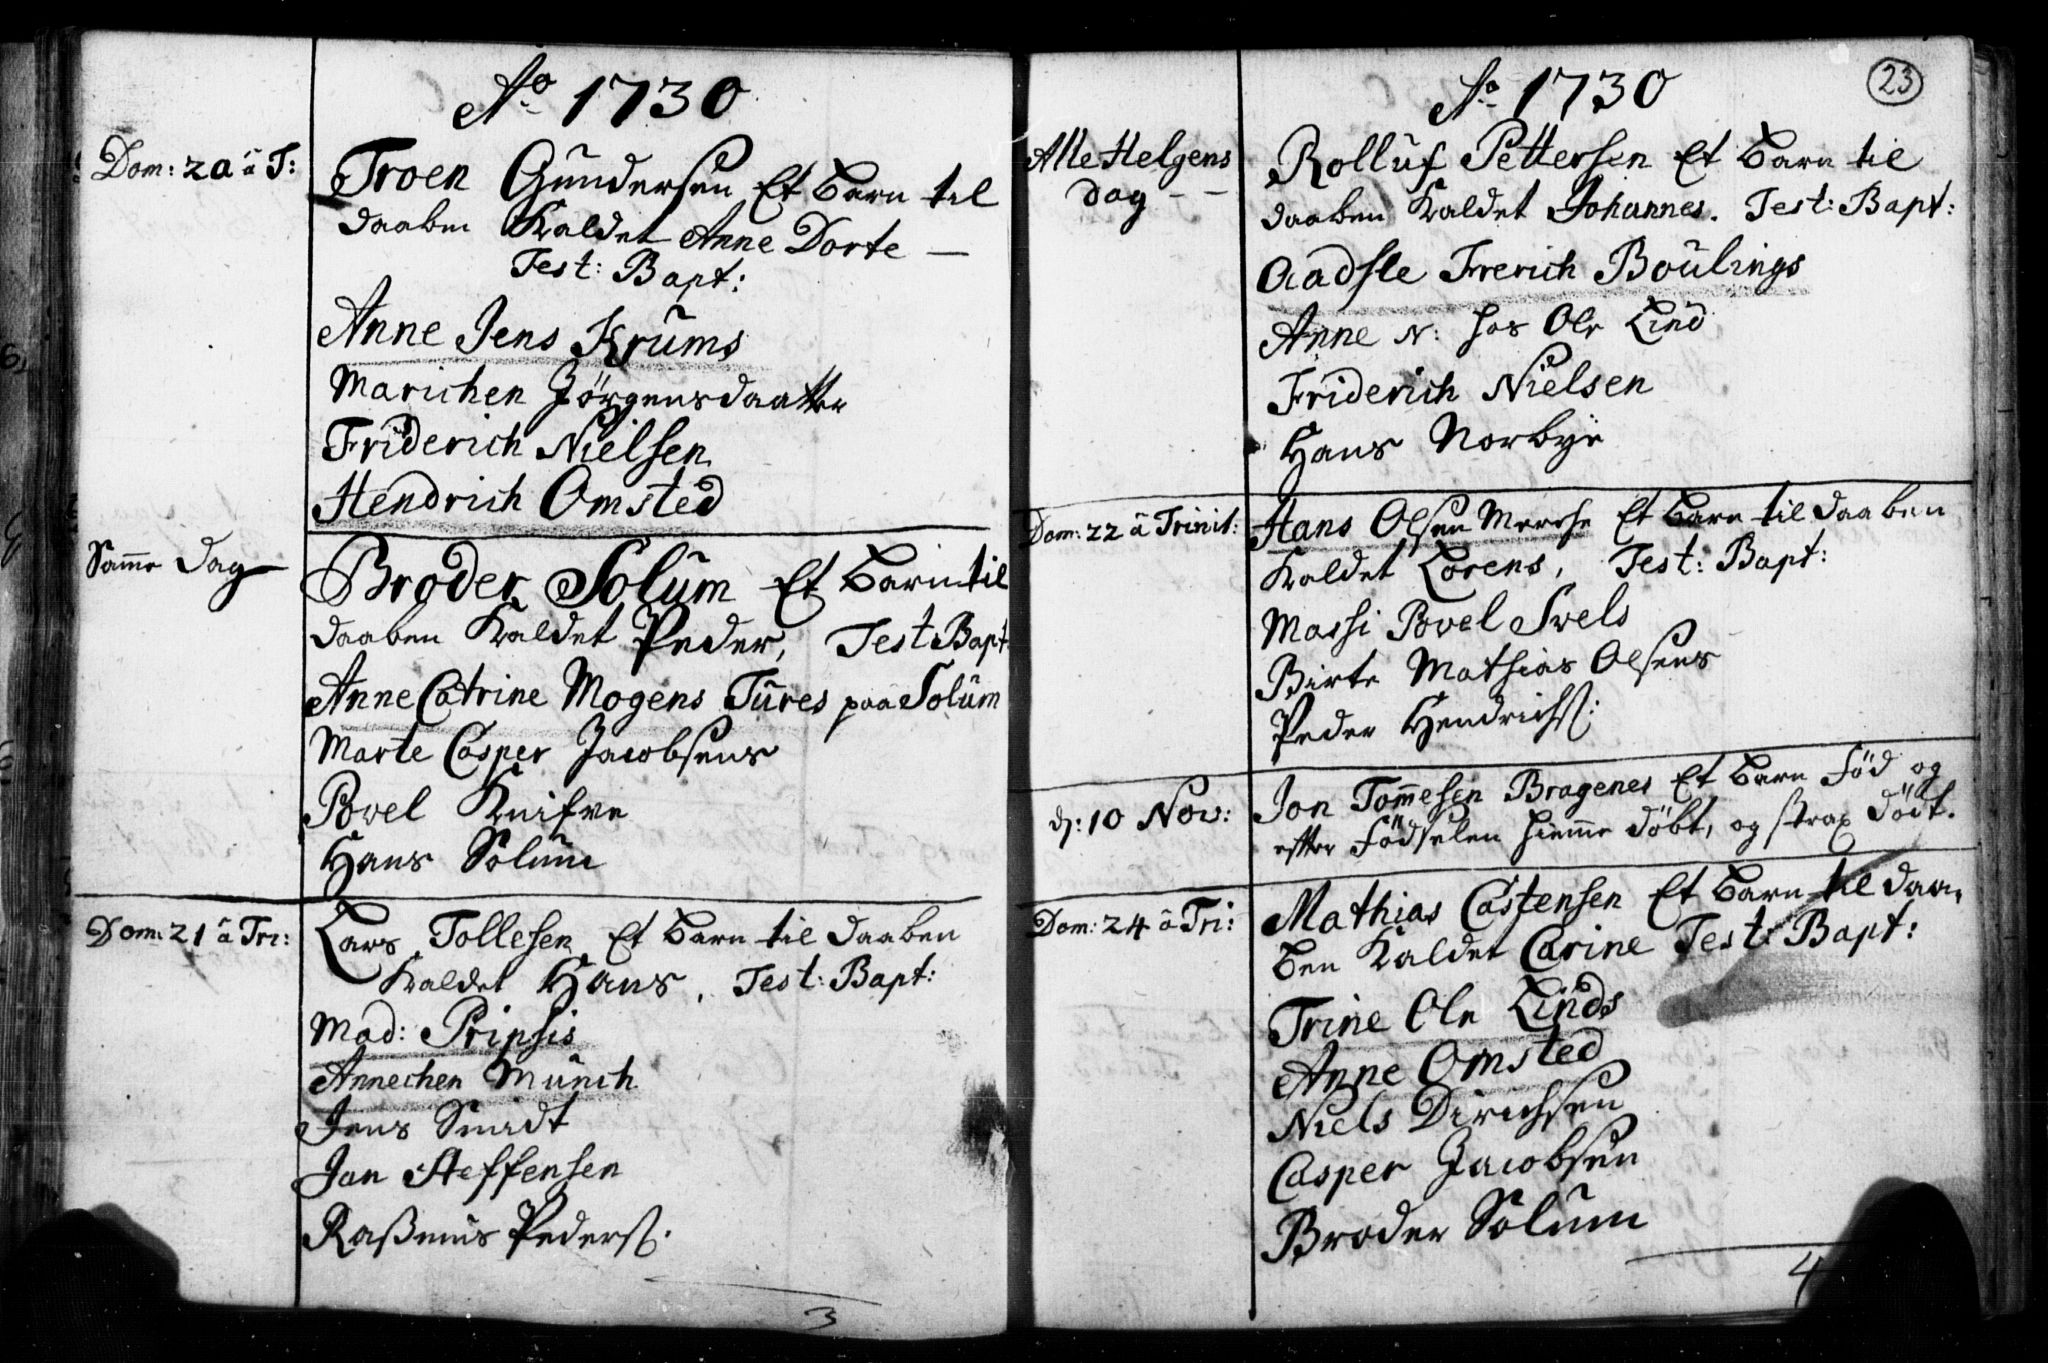 Ao 1730
Dom: 20 à T:
Troen Gundersen Et Barn til
daaben Kaldet Anne Dorte —
Test: Bapt:
Anne Jens Krums
Marichen Jörgensdaatter
Friderich Nielsen
Hendrich Omsted
Samme Dag
Broder Solum Et Barn til
daaben Kaldet Peder, Test Bapt:
Anne Catrine Mogens Tures paa Solum
Marte Casper Jacobsens
Povel Knifve
Hans Solum
Dom: 21 à Tri:
Lars Tollesen Et Barn til daaben
Kaldet Hans, Test: Bapt:
Mad: Pripsis
Annechen Münch
Jens Smidt
Jan Steffensen
Raßmus Peders:
3
23
Ao 1730
Alle Helgens
Dag - -
Rolluf Pettersen Et Barn til
daaben Kaldet Johannes. Test: Bapt:
Aadsle Frerich Boulings
Anne N: hos Ole Lind
Friderich Nielsen
Hans Norbye
Dom: 22 à Trinit:
Hans Olsen Merche Et Barn til daaben
Kaldet Lorens, Test: Bapt:
Massi Povel Svels
Birte Mathias Olsens
Peder Hendrichs:
d: 10 Nov:
Jon Tommesen Bragenes Et Barn Föd og
efter Födselen hiemme döbt, og strax Dödt.
Dom: 24 à Tri:
Mathias Castensen Et Barn til daa,
ben Kaldet Carine Test: Bapt:
Trine Ole Linds
Anne Omsted
Niels Dirichsen
Casper Jacobsen
Broder Solum
4